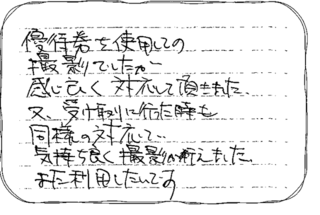 優待券を使用しての
撮影でしたが
感じ良く対応して頂きました。
又、受け取りに行った時も
同様の対応で、
気持ち良く撮影が行えました。
また利用したいです